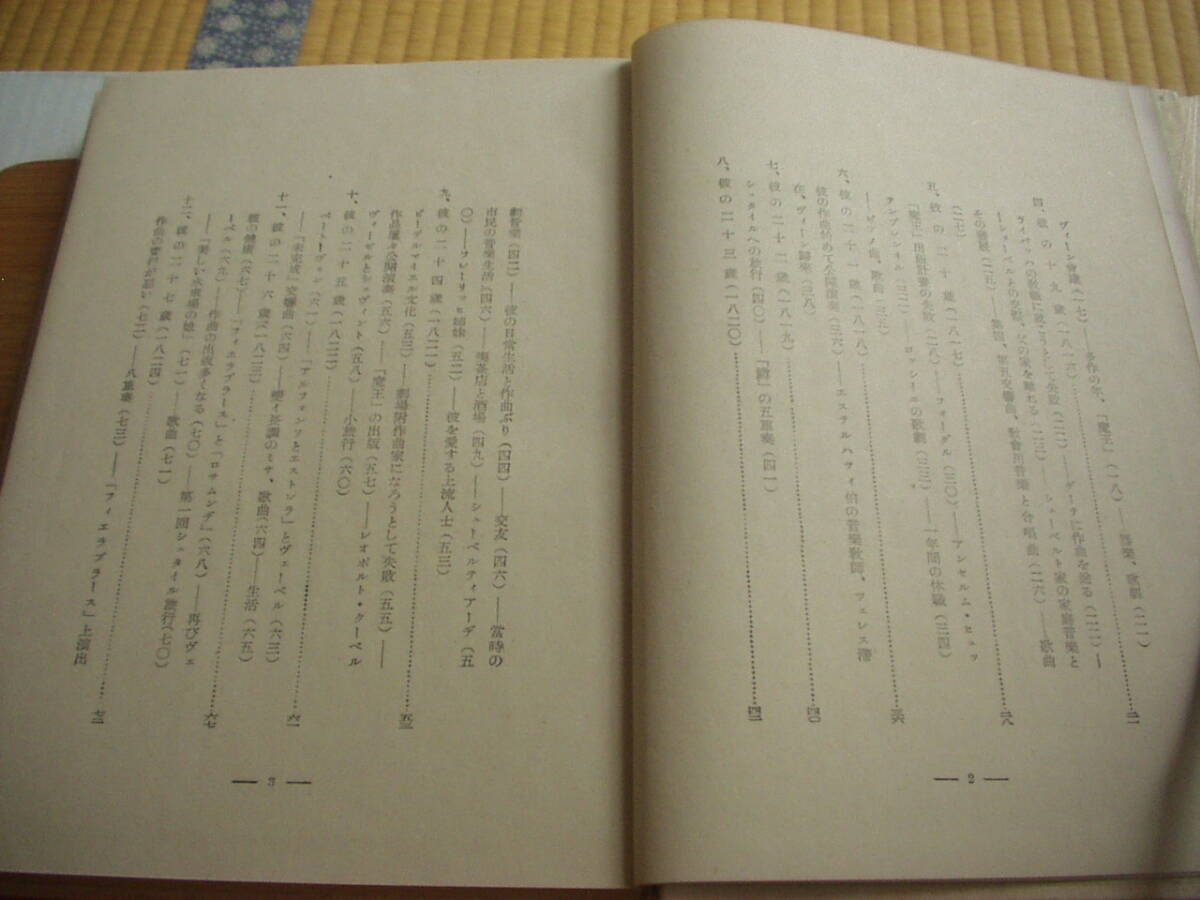 ヴィーン會議(一七)――多作の年、「魔王」(一八)――器樂、歌劇(二一)
四、彼の十九歳(一八一六)……二一
ライバッハの敎職に就こうとして失敗(二一)――ゲーテに作曲を送る(二二)――
ショーベルとの交際、父の家を離れる(二三)――シューベルト家の家庭音樂と
その發展(二五)――第四、第五交響曲、敎會用音樂と合唱曲(二六)――歌曲
(二七)
五、彼の二十歳(一八一七)……二八
「魔王」出版計畫の失敗(二八)――フォーグル(三〇)――アンセルム・ヒュッ
テンブレンネル(三二)――ロッシーニの歌劇(三三)――一年間の休職(三四)
――ピアノ曲、歌曲(三五)
六、彼の二十一歳(一八一八)……三六
彼の作曲始めて公開演奏(三六)――エステルハツィ伯の音樂敎師、ツェレス滯
在、ヴィーン歸來(三八)
七、彼の二十二歳(一八一九)……四〇
シュタイルへの旅行(四〇)――「鱒」の五重奏(四一)
八、彼の二十三歳(一八二〇)……四二
― 2 ―
劇音樂(四二)――彼の日常生活と作曲ぶり(四四)――交友(四六)――當時の
市民の音樂生活(四六)――喫茶店と酒場(四九)――シューベルティアーデ(五
〇)――フレーリッヒ姉妹(五二)――彼を愛する上流人士(五三)
九、彼の二十四歳(一八二一)……五三
ビーデルマイエル文化(五三)――劇場附作曲家になろうとして失敗(五五)――
作品屢々公開演奏(五六)――「魔王」の出版(五七)――レオポルト・クーペル
ヴィーゼルとシュヴィント(五八)――小旅行(六〇)
十、彼の二十五歳(一八二二)……六一
ベートーヴェン(六一)――「アルフォンソとエストレラ」とヴェーベル(六三)
――「未完成」交響曲(六四)――變イ長調のミサ、歌曲(六四)――生活(六五)
十一、彼の二十六歳(一八二三)……六七
彼の健康(六七)――「フィエラブラース」と「ロザムンデ」(六八)――再びヴェ
ーベル(六九)――作曲の出版多くなる(七〇)――第一回シュタイル旅行(七〇)
――「美しい水車場の娘」(七一)――歌曲(七一)
十二、彼の二十七歳(一八二四)……七二
作曲の賣行が惡い(七二)――八重奏(七三)――「フィエラブラース」上演出
― 3 ―